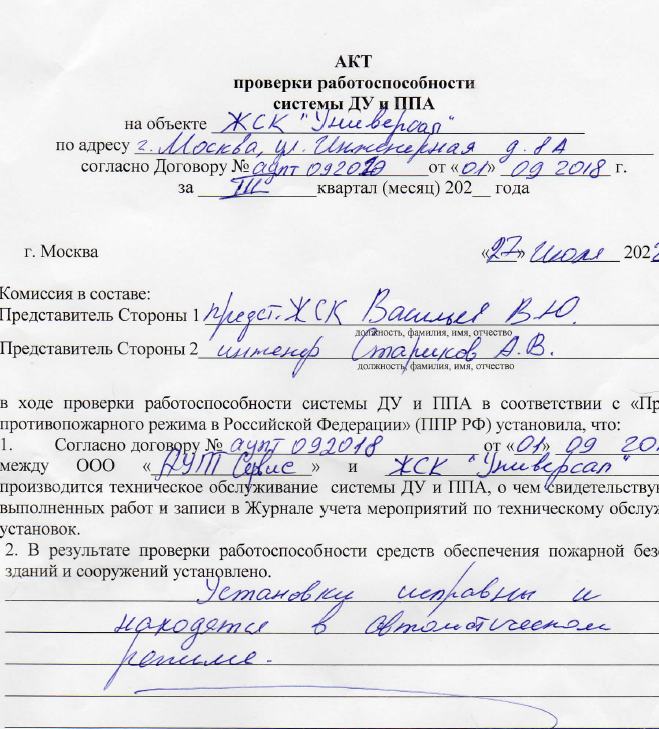 АКТ
проверки работоспособности
системы ДУ и ППА
на объекте ЖСК "Универсал"
по адресу г. Москва, ул. Инженерная д. 8А
согласно Договору № аупт 092018 от «01» 09 2018 г.
за III квартал (месяц) 202__ года
г. Москва «27» Июля 202
Комиссия в составе:
Представитель Стороны 1 предст. ЖСК Васильев В.Ю.
должность, фамилия, имя, отчество
Представитель Стороны 2 инженер Стариков А.В.
должность, фамилия, имя, отчество
в ходе проверки работоспособности системы ДУ и ППА в соответствии с «Пр
противопожарного режима в Российской Федерации» (ППР РФ) установила, что:
1. Согласно договору № аупт 092018 от «01» 09 201
между ООО «ДУТ Сервис» и ЖСК "Универсал"
производится техническое обслуживание системы ДУ и ППА, о чем свидетельствую
выполненных работ и записи в Журнале учета мероприятий по техническому обслуж
установок.
2. В результате проверки работоспособности средств обеспечения пожарной без
зданий и сооружений установлено.
Установки исправны и
находятся в автоматическом
режиме.